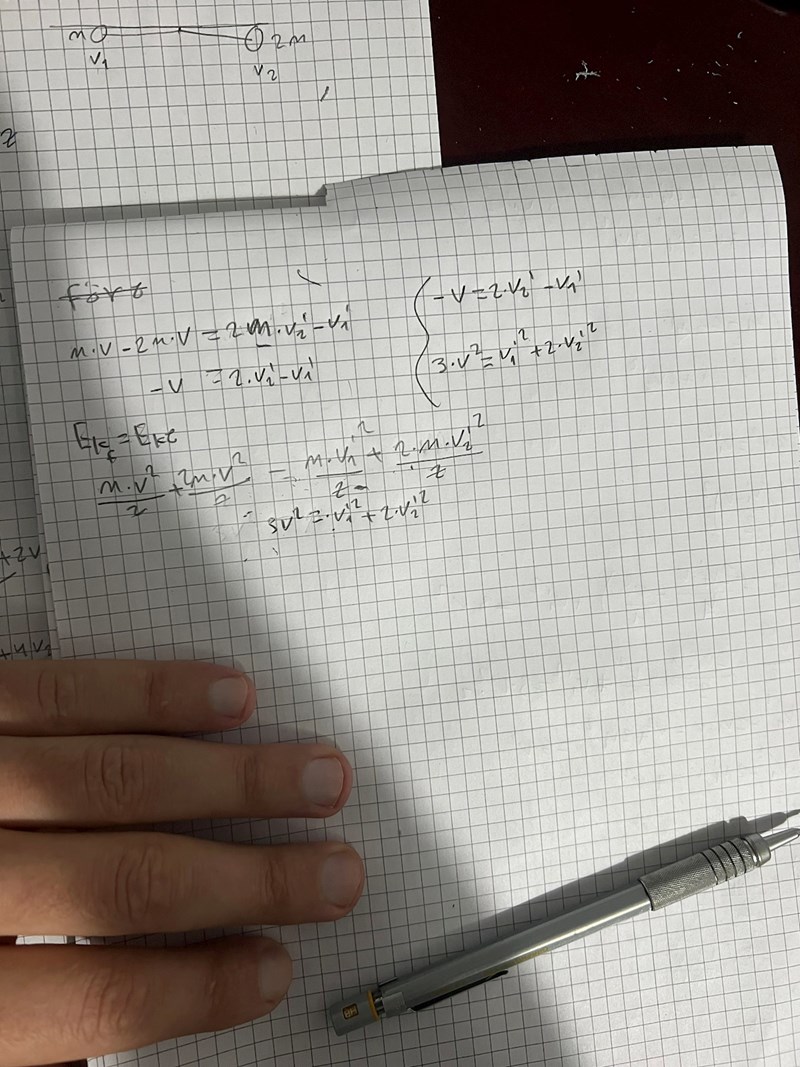 m
2m
v₁
v₂
2
före
m·v - 2m·v = 2m·v₂' - v₁'
-v = 2·v₂' - v₁'
-v = 2·v₂' - v₁'
3·v² = v₁'² + 2·v₂'²
Ekf = Eke
m·v²/2 + 2m·v²/2 = m·v₁'²/2 + 2·m·v₂'²/2
3v² = v₁'² + 2·v₂'²
+2v